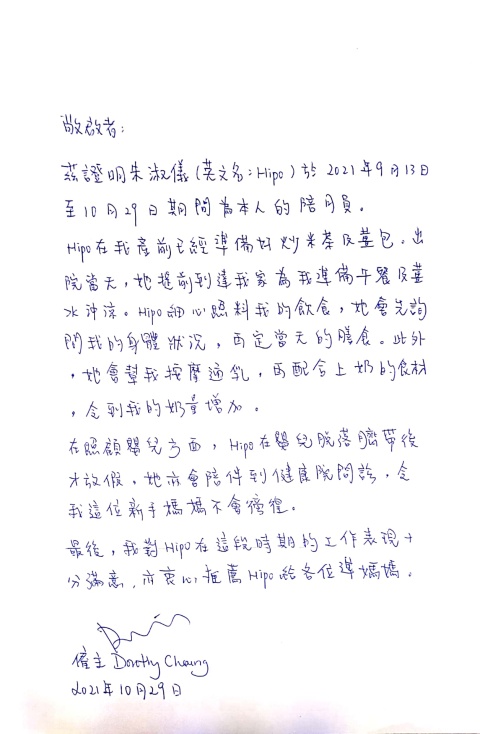 敬啟者：
茲證明朱淑儀（英文名：Hipo）於 2021年9月13日
至10月29日期間為本人的陪月員。
Hipo在我產前已經準備好炒米茶及薑包。出
院當天，她提前到達我家為我準備午餐及薑
水沖涼。Hipo細心照料我的飲食，她會先詢
問我的身體狀況，再定當天的膳食。此外
，她會幫我按摩通乳，再配合上奶的食材
，令到我的奶量增加。
在照顧嬰兒方面，Hipo在嬰兒脫落臍帶後
才放假，她亦會陪伴到健康院問診，令
我這位新手媽媽不會徬徨。
最後，我對Hipo在這段時期的工作表現十
分滿意，亦衷心推薦Hipo給各位準媽媽。
僱主 Dorothy Cheung
2021年10月29日